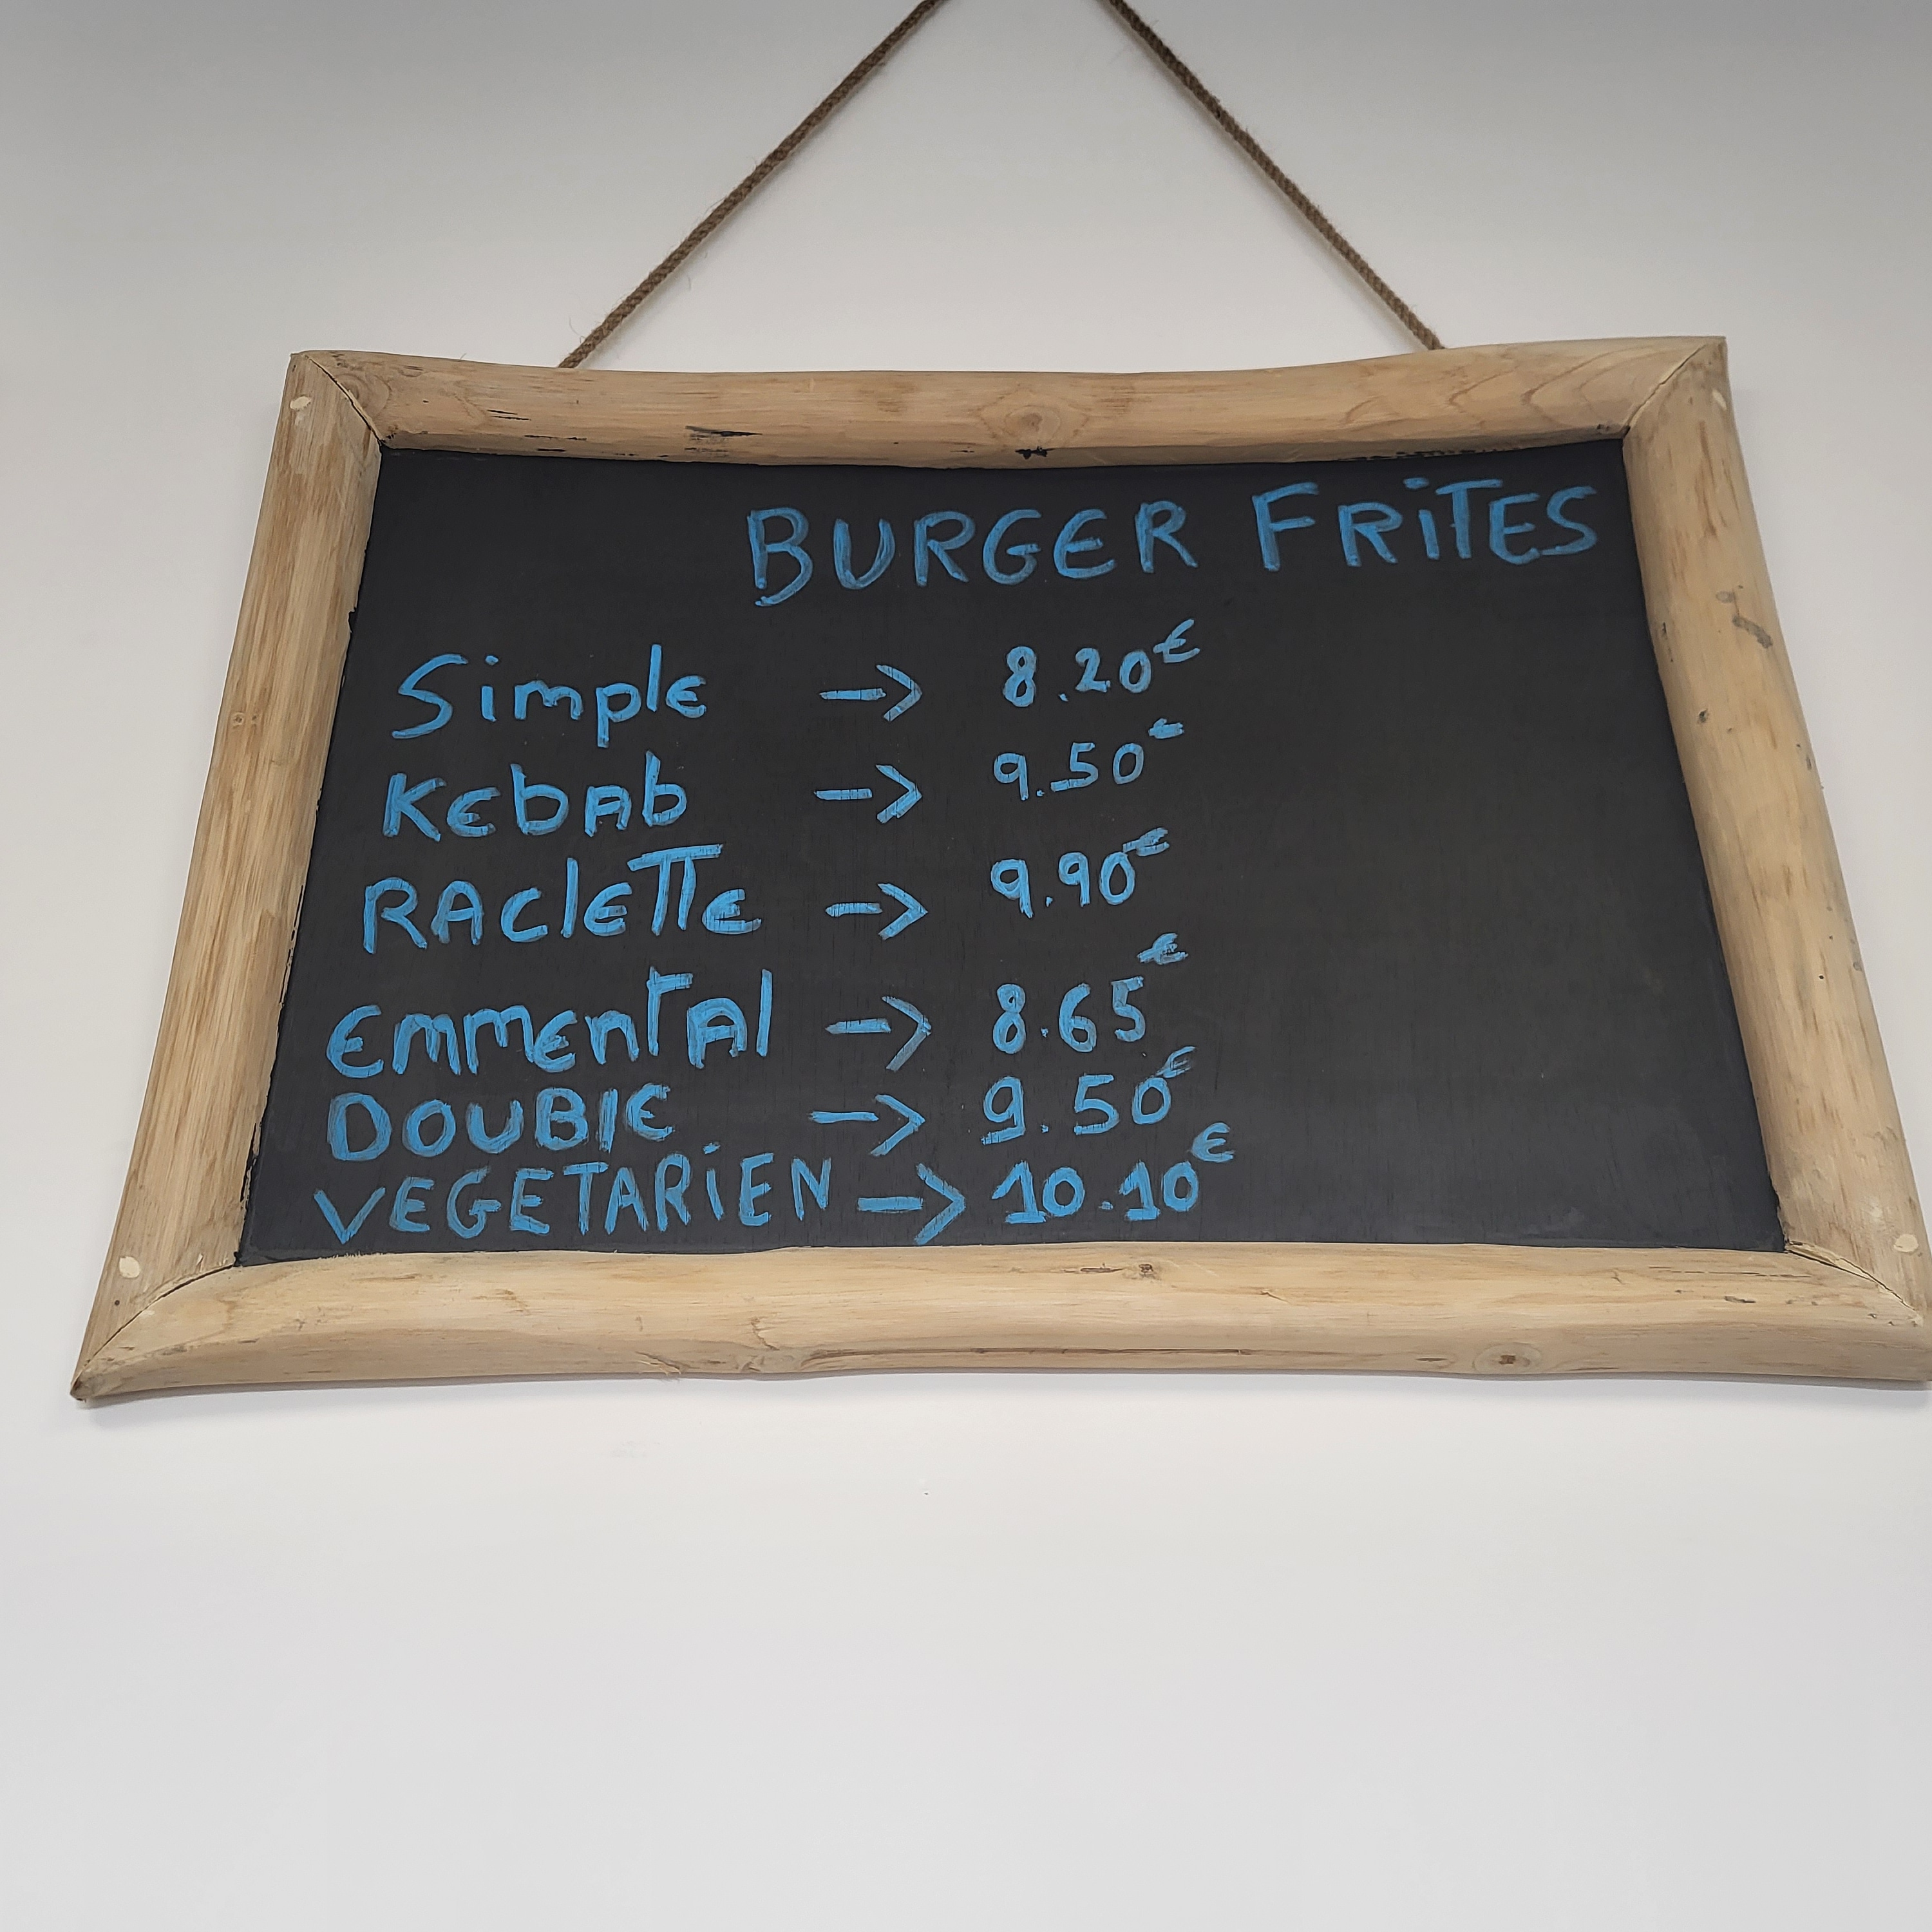 BURGER FRITES
Simple -> 8.20€
Kebab -> 9.50€
Raclette -> 9.90€
Emmental -> 8.65€
Double -> 9.50€
VEGETARIEN -> 10.10€